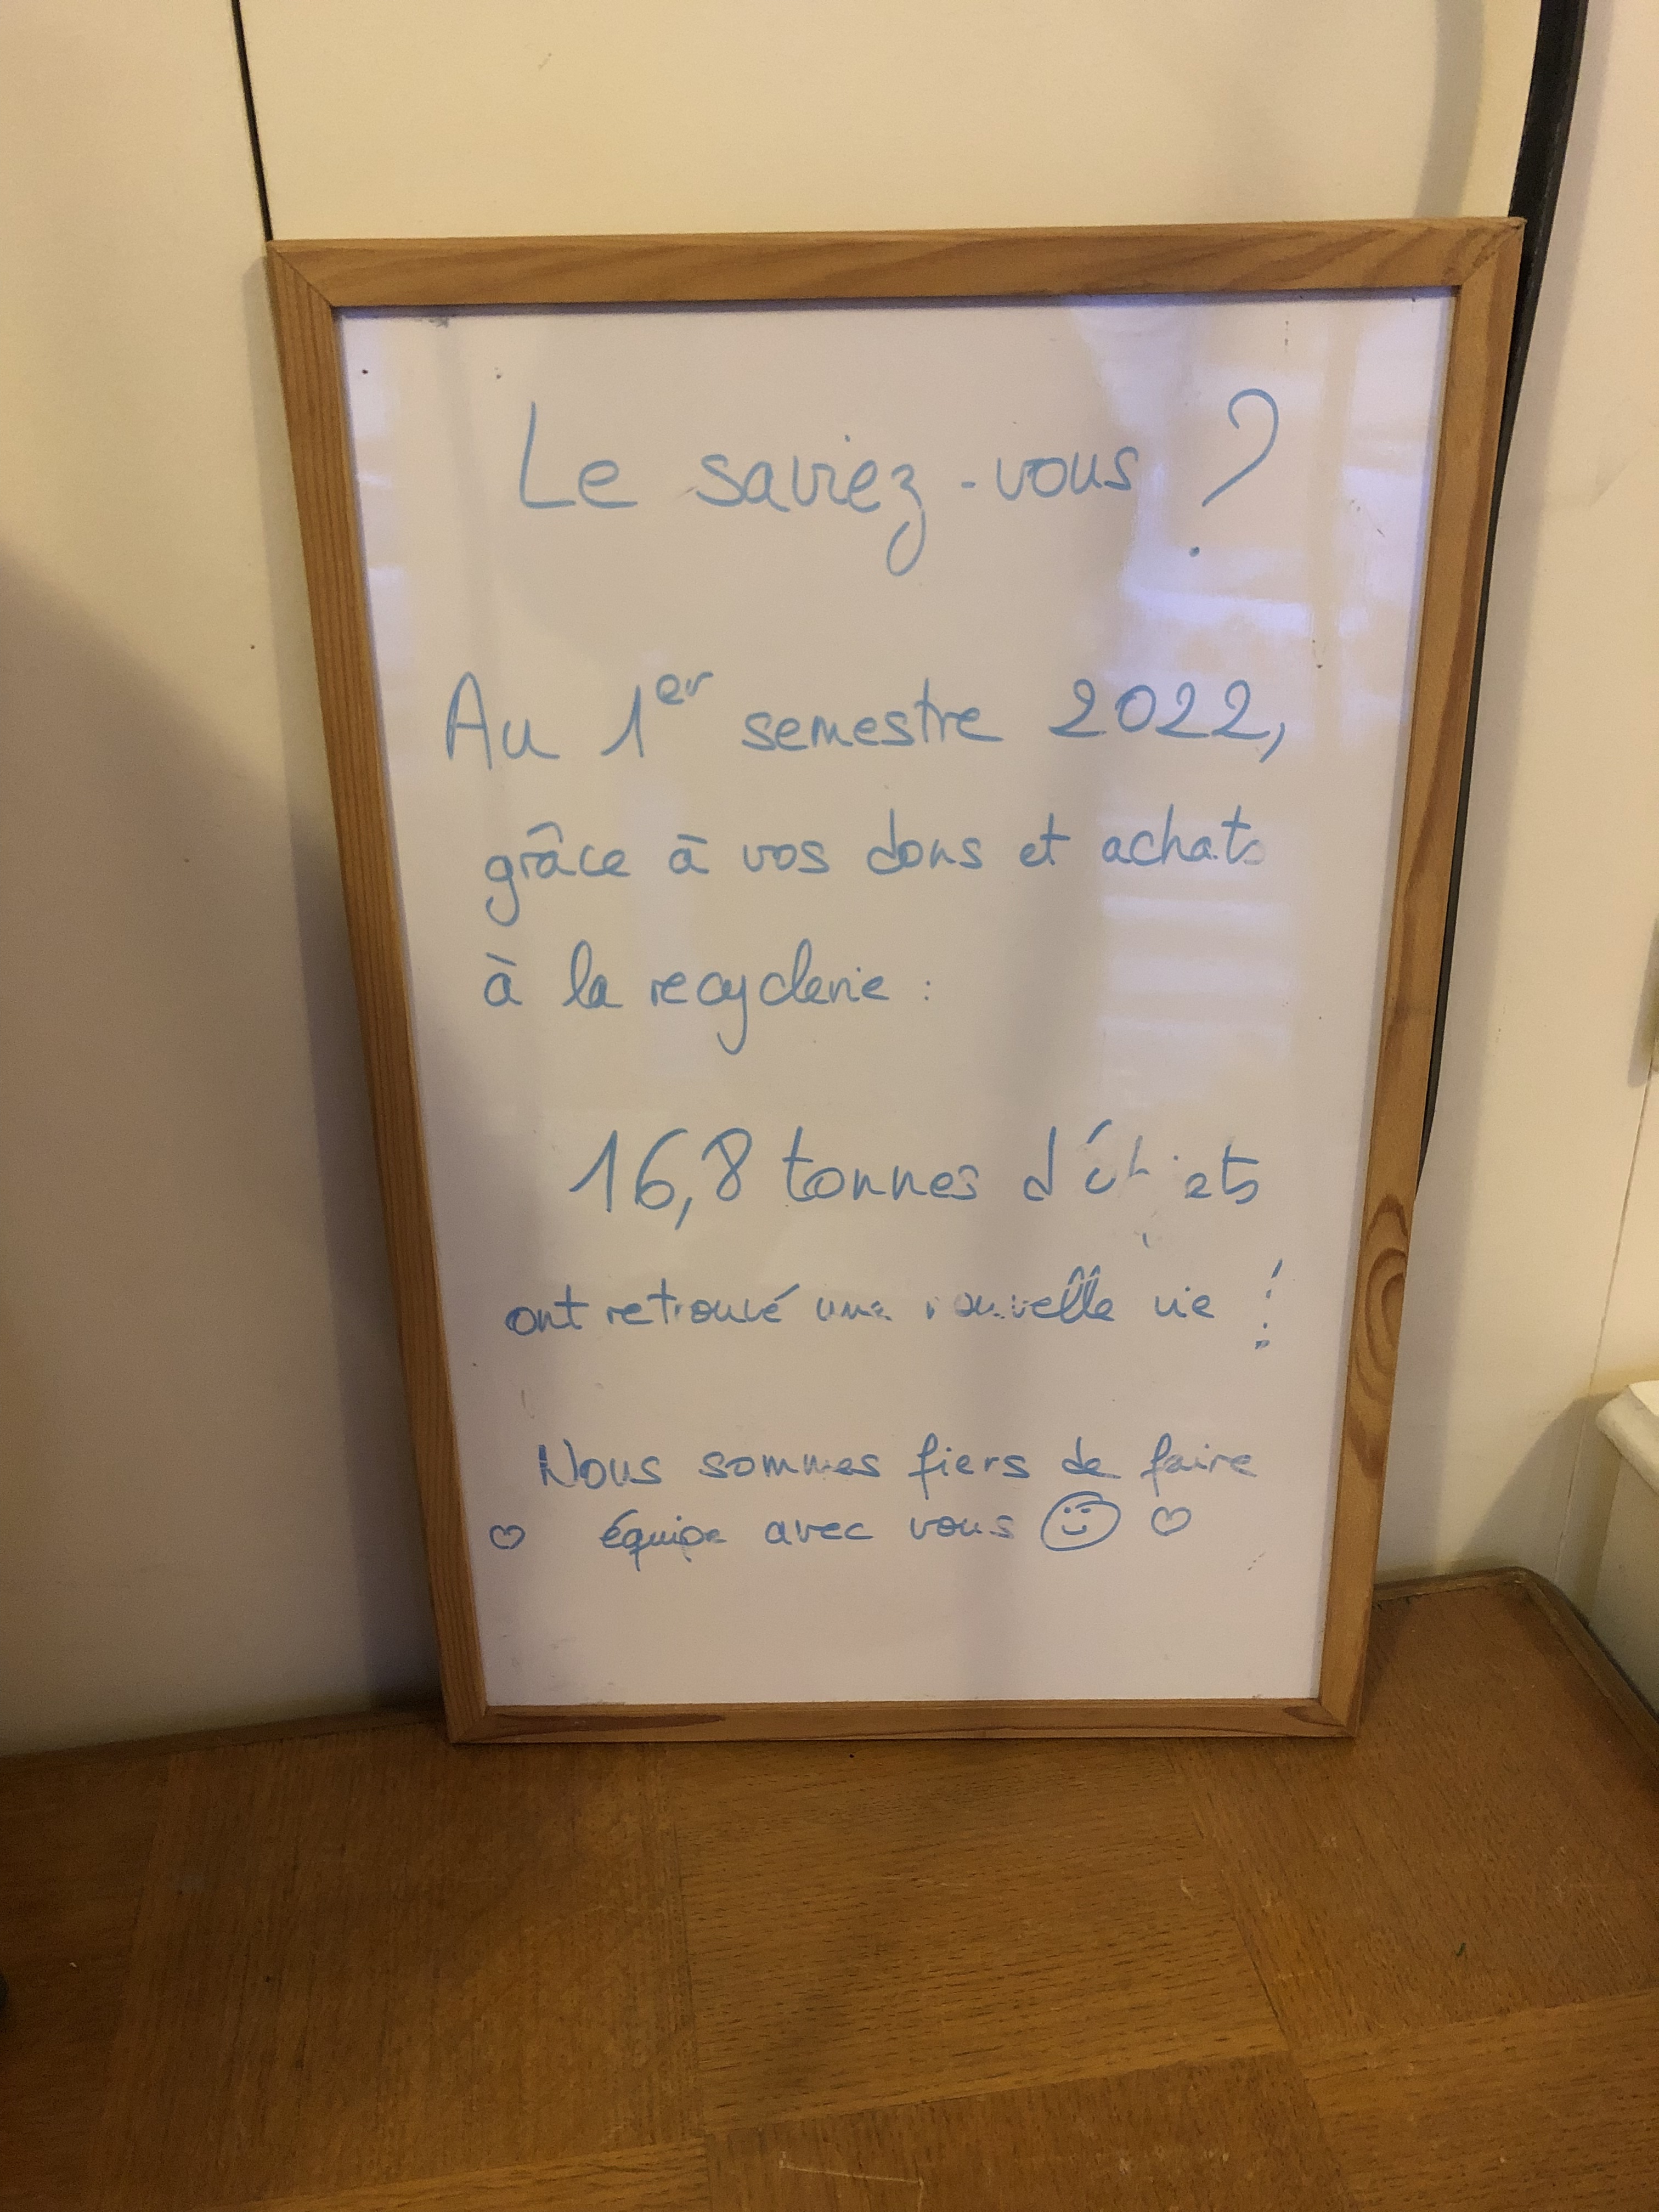 Le saviez-vous ?
Au 1er semestre 2022,
grâce à vos dons et achats
à la recyclerie :
16,8 tonnes d'objets
ont retrouvé une nouvelle vie !
Nous sommes fiers de faire
♡ équipe avec vous ☺ ♡